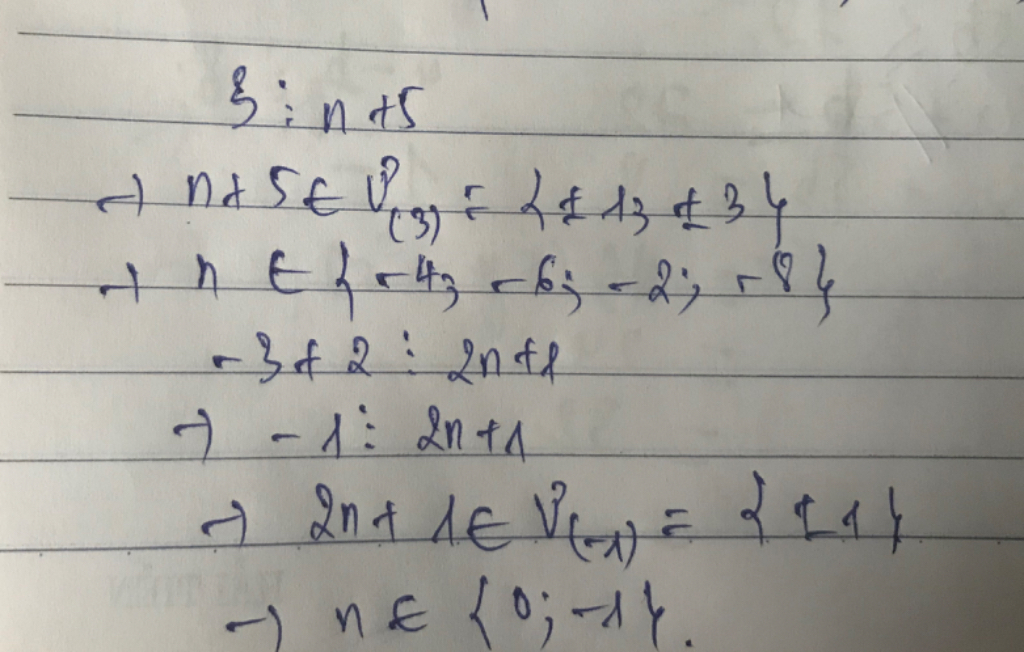 3 ⋮ n+5
→ n+5 ∈ Ư(3) = {±1; ±3}
→ n ∈ {-4; -6; -2; -8}
-3+2 ⋮ 2n+1
→ -1 ⋮ 2n+1
→ 2n+1 ∈ Ư(-1) = {±1}
→ n ∈ {0; -1}.